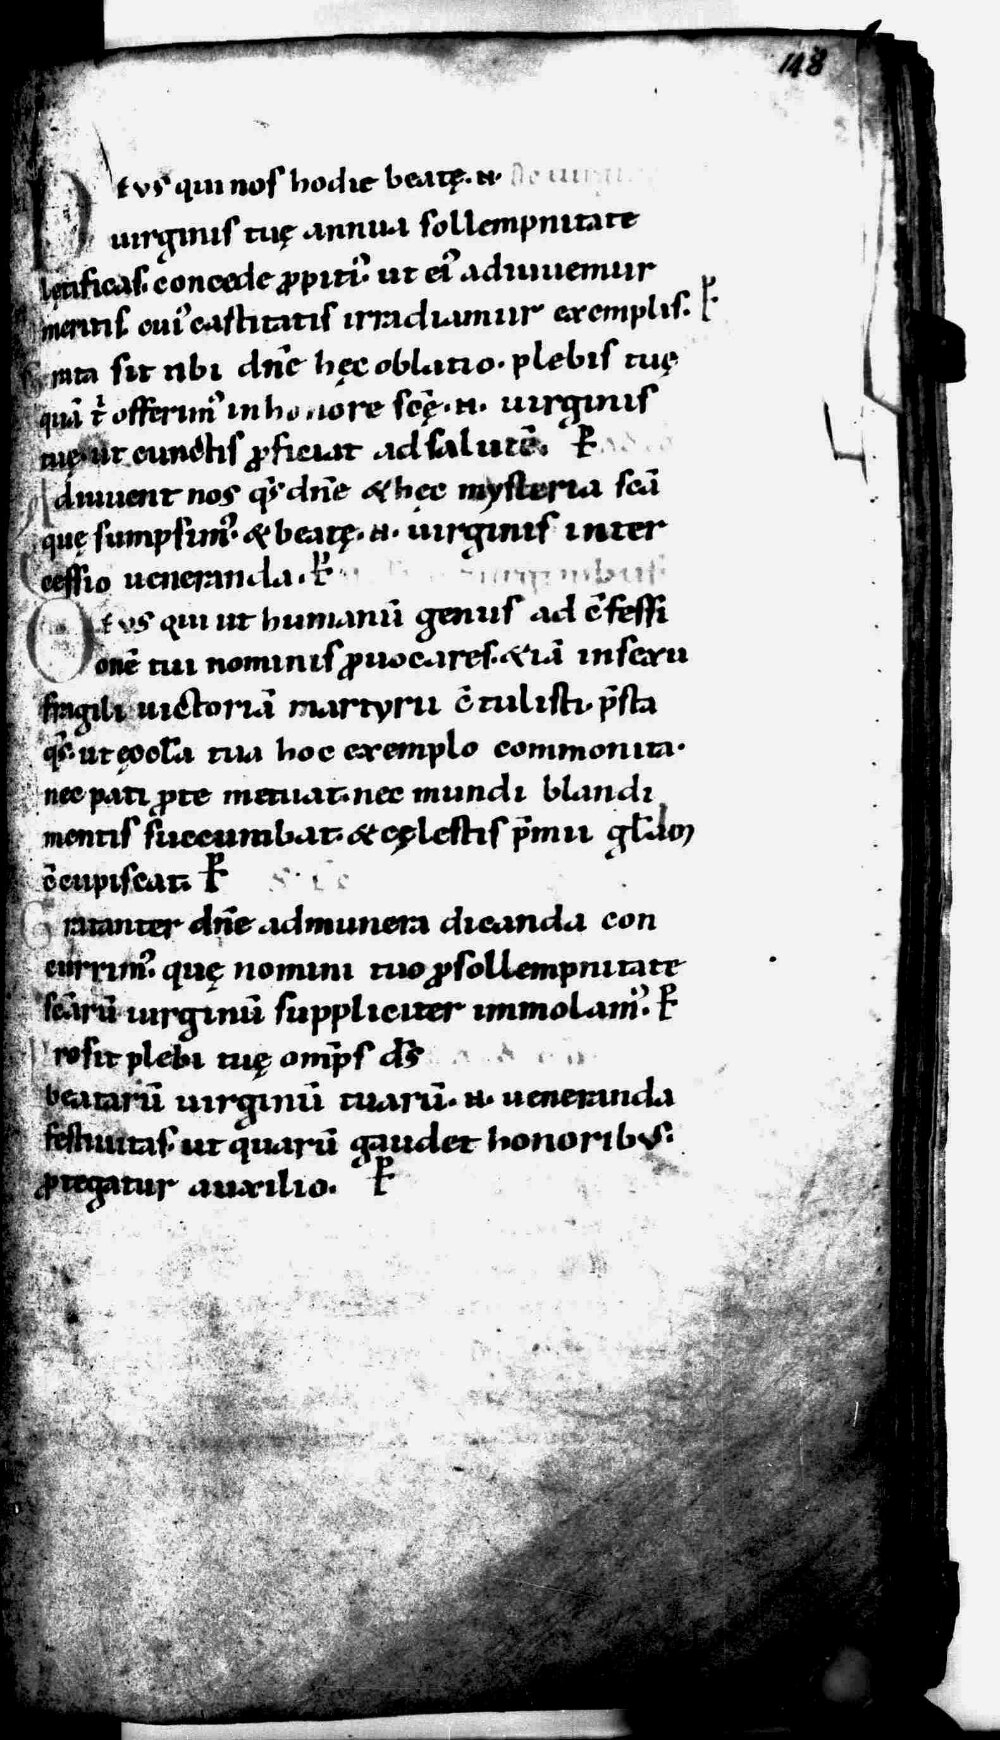 148
Ds qui nos hodie beatę .N. de uirgin
uirginis tuę annua sollempnitate
lętificas. concede ꝓpitiꝰ ut eiꝰ adiuuemur
meritis cuiꝰ castitatis irradiamur exemplis. ꝑ
Grata sit tibi dn̄e hęc oblatio. plebis tuę
quā t̄ offerimꝰ in honore scę̄ .N. uirginis
tuę. ut cunctis ꝓficiat ad salutē. ꝑ
Adiuuent nos q̄s dn̄e & hęc mysteria scā
quę sumpsimꝰ. & beatę .N. uirginis inter
cessio ueneranda. ꝑ
Ds qui ut humanū genus ad c̄fessi
onē tui nominis ꝓuocares. & iā in sexu
fragili uictoriā martyrii c̄tulisti. p̄sta
q̄s. ut ęccła tua hoc exemplo commonita.
nec pati ꝓ te metuat. nec mundi blandi
mentis succumbat. & cęlestis p̄mii gl̄am
c̄cupiscat. ꝑ
Gratanter dn̄e ad munera dicanda con
currimꝰ. quę nomini tuo ꝓ sollempnitate
scārū uirginū suppliciter immolamꝰ. ꝑ
Prosit plebi tuę omīps ds̄
beatarū uirginū tuarū .N. ueneranda
festiuitas. ut quarū gaudet honoribus.
ꝓtegatur auxilio. ꝑ